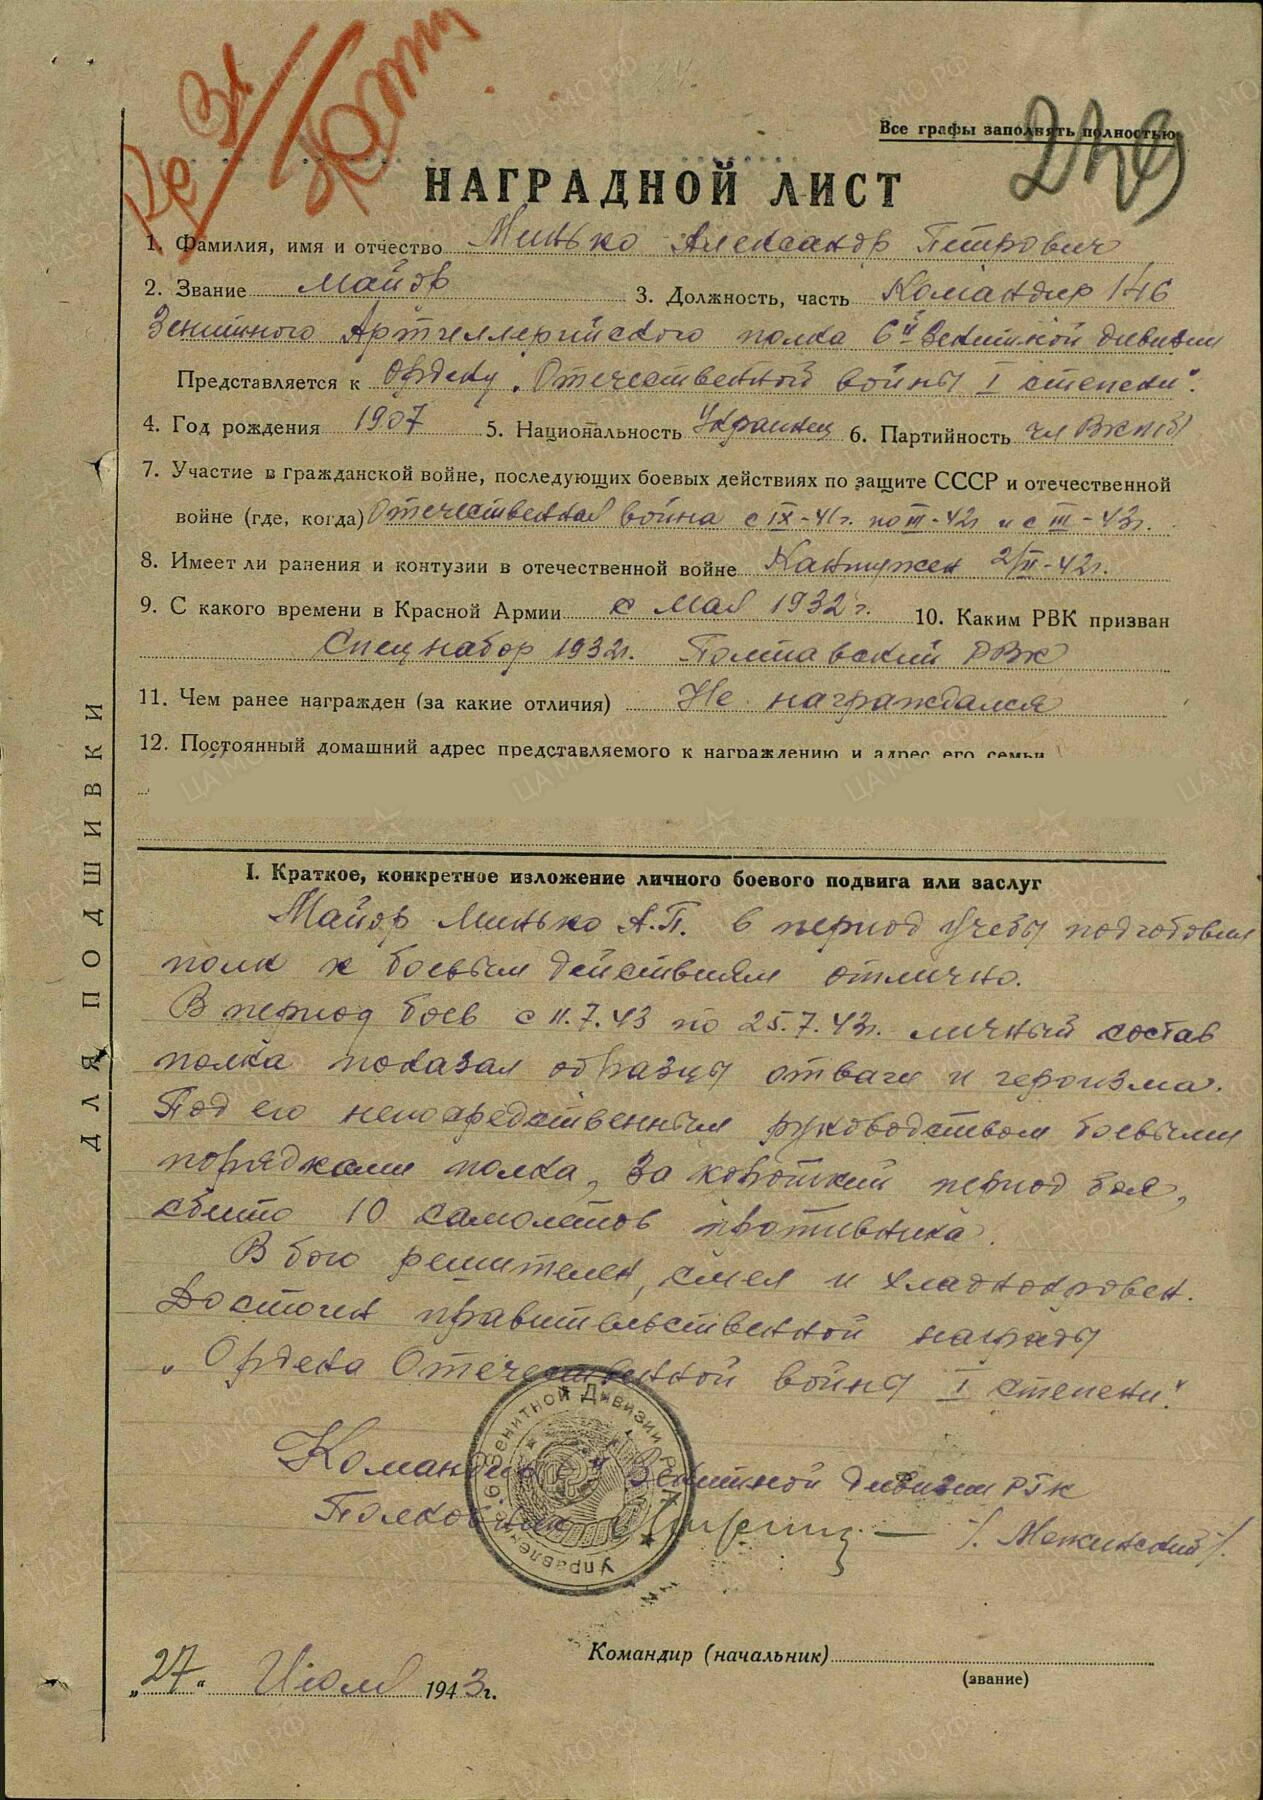 Все графы заполнять полностью
НАГРАДНОЙ ЛИСТ
1. Фамилия, имя и отчество Минько Александр Петрович
2. Звание майор 3. Должность, часть Командир 146
Зенитного Артиллерийского полка 6й Зенитной дивизии
Представляется к Ордену „Отечественной войны I степени".
4. Год рождения 1907 5. Национальность Украинец 6. Партийность чл ВКП(б)
7. Участие в гражданской войне, последующих боевых действиях по защите СССР и отечественной
войне (где, когда) Отечественная война с IX-41г. по III-42г и с III-43г.
8. Имеет ли ранения и контузии в отечественной войне Кантужен 2/II-42г.
9. С какого времени в Красной Армии с Мая 1932 г. 10. Каким РВК призван
Спецнабор 1932г. Полтавский РВК
11. Чем ранее награжден (за какие отличия) Не награждался
12. Постоянный домашний адрес представляемого к награждению и адрес его семьи
ДЛЯ ПОДШИВКИ
I. Краткое, конкретное изложение личного боевого подвига или заслуг
Майор Минько А.П. в период учебы подготовил
полк к боевым действиям отлично.
В период боев с 11.7.43 по 25.7.43г. личный состав
полка показал образцы отваги и героизма.
Под его непосредственным руководством боевыми
порядками полка, за короткий период боя,
сбито 10 самолетов противника.
В бою решителен, смел и хладнокровен.
Достоин правительственной награды
„Ордена Отечественной войны I степени".
Командир 6 Зенитной дивизии РГК
Полковник /Межинский/.
Управление 6 Зенитной Дивизии РГК
Командир (начальник)
(звание)
„27" Июля 1943 г.
ЦА МО РФ